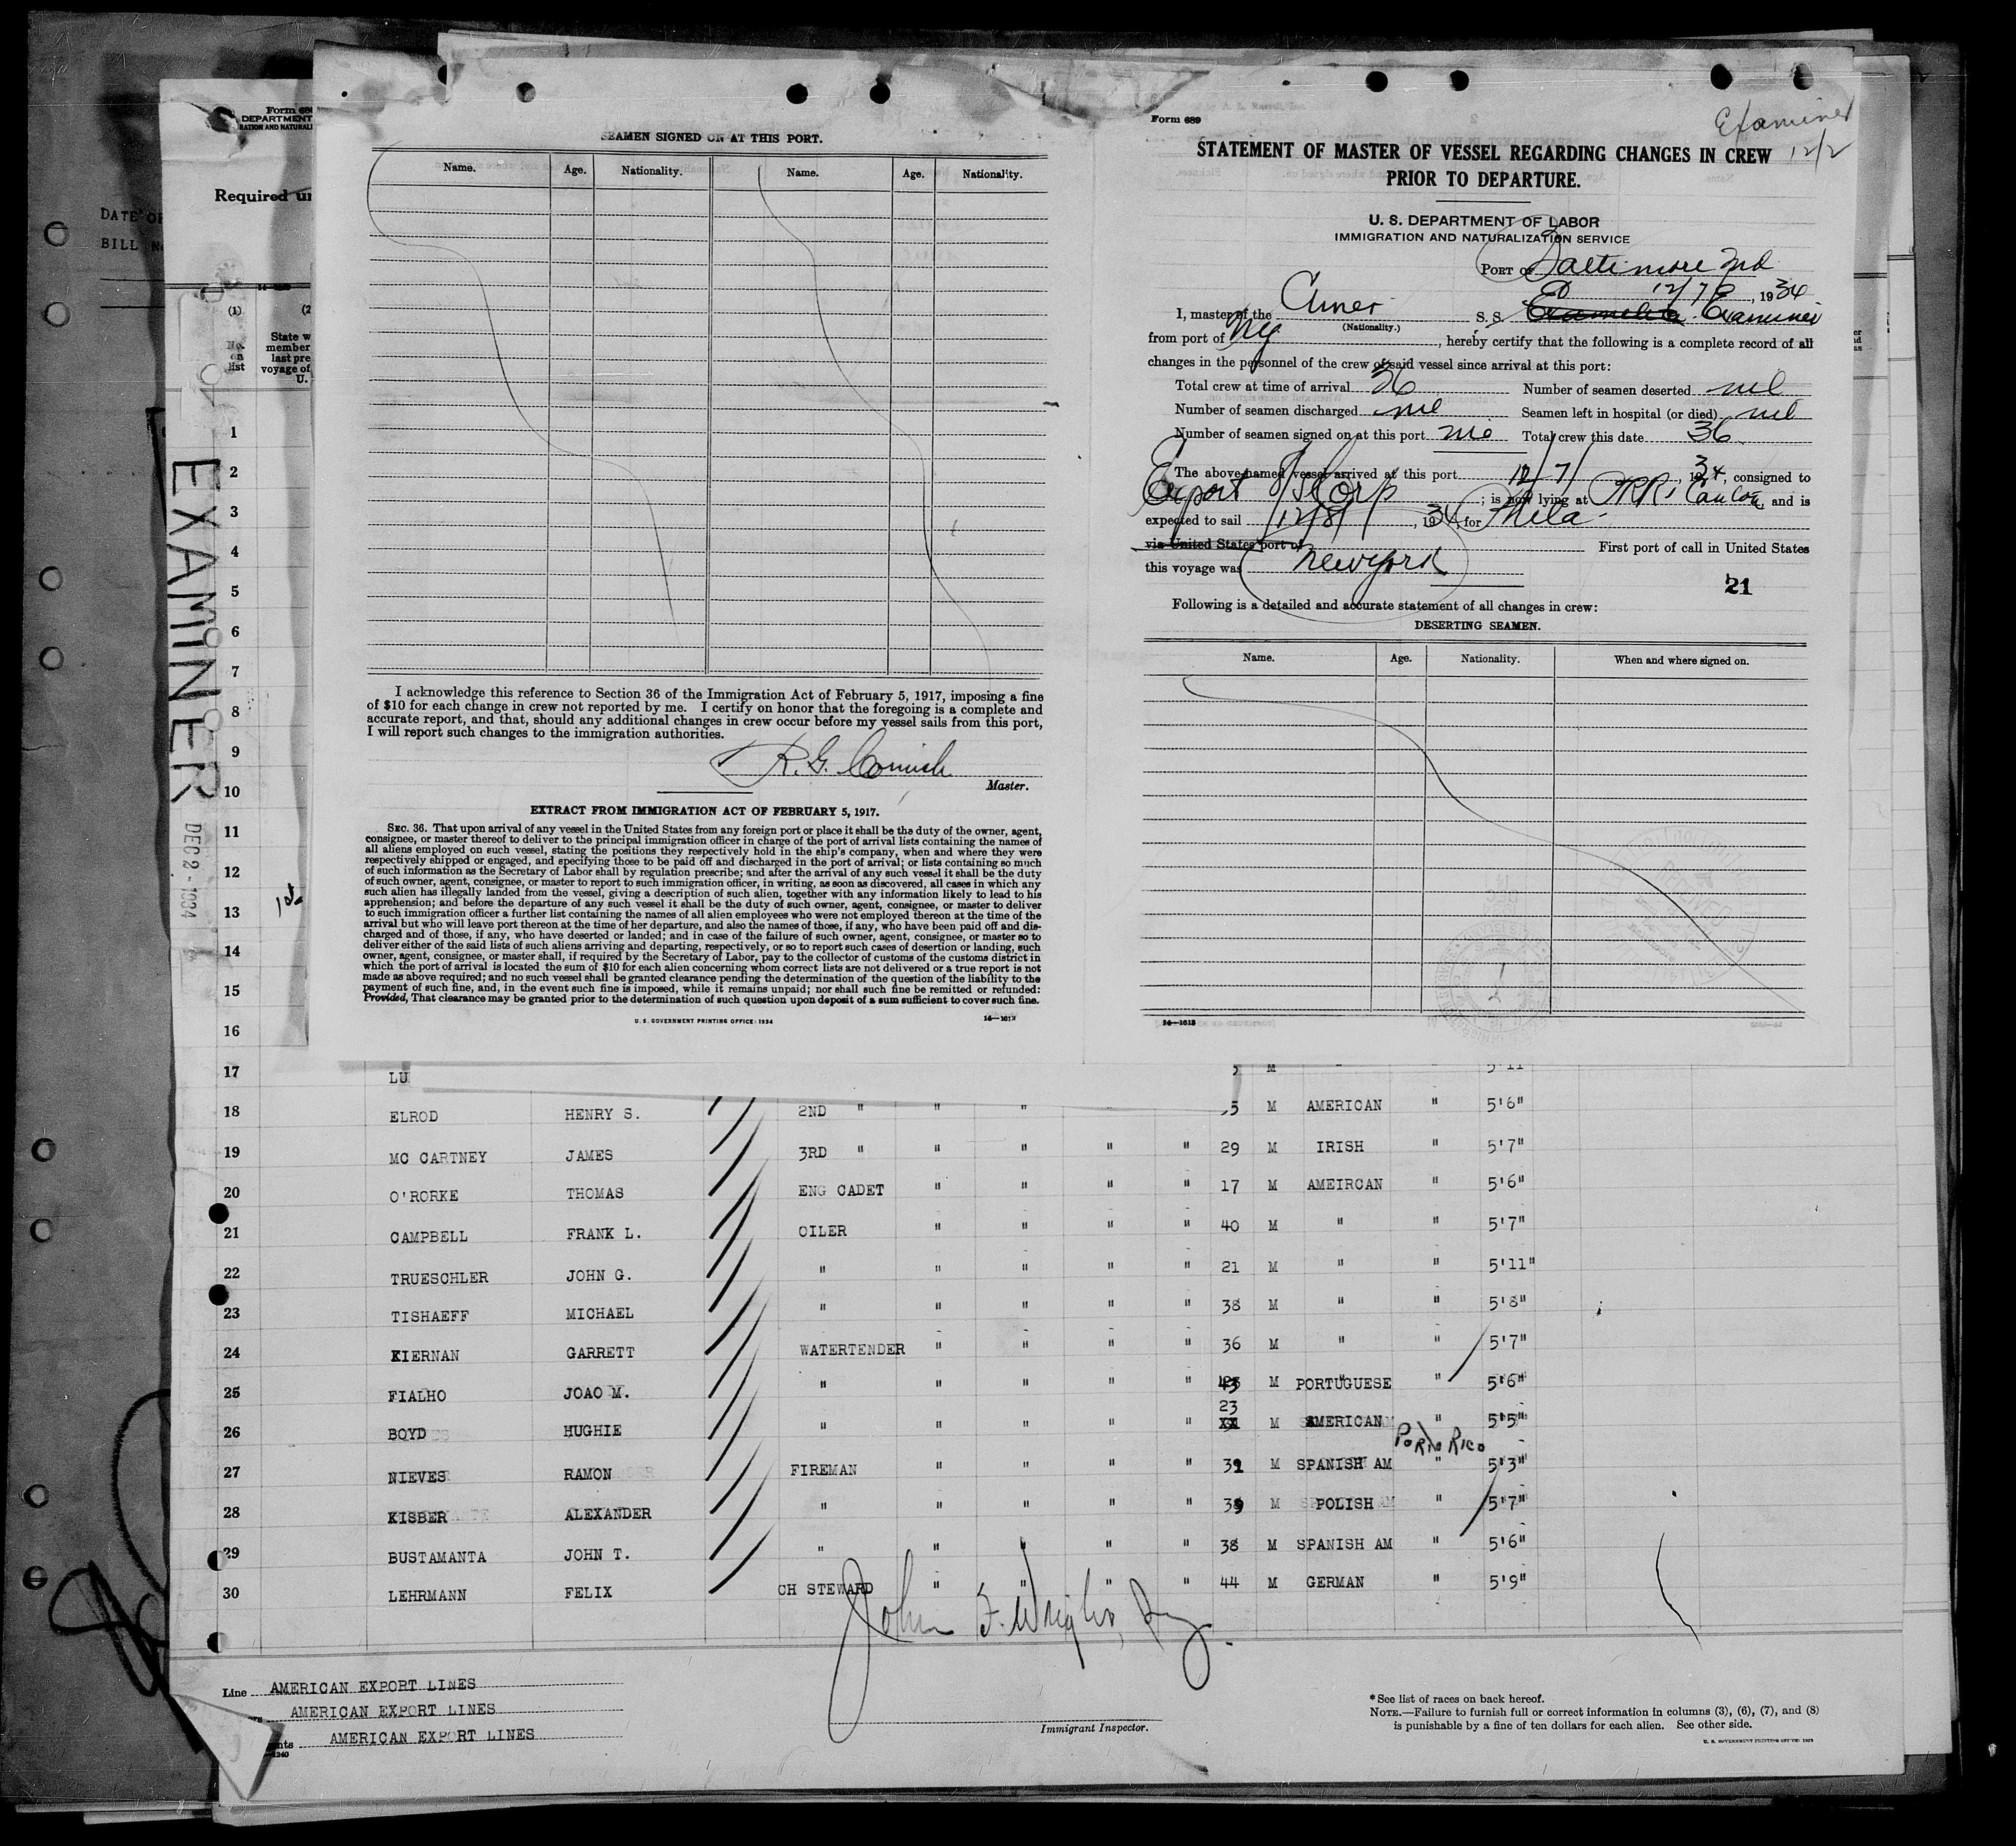 Form 689
DEPARTMENT
RATION AND NATURALI
Required un
DATE OF
BILL No
(1)
No. on list
State w
member
last pre
voyage of
U.
EXAMINER
DEC 2 - 1934
SEAMEN SIGNED ON AT THIS PORT.
Name. Age. Nationality. Name. Age. Nationality.
I acknowledge this reference to Section 36 of the Immigration Act of February 5, 1917, imposing a fine
of $10 for each change in crew not reported by me. I certify on honor that the foregoing is a complete and
accurate report, and that, should any additional changes in crew occur before my vessel sails from this port,
I will report such changes to the immigration authorities.
R. G. Cornish
Master.
EXTRACT FROM IMMIGRATION ACT OF FEBRUARY 5, 1917.
SEC. 36. That upon arrival of any vessel in the United States from any foreign port or place it shall be the duty of the owner, agent,
consignee, or master thereof to deliver to the principal immigration officer in charge of the port of arrival lists containing the names of
all aliens employed on such vessel, stating the positions they respectively hold in the ship's company, when and where they were
respectively shipped or engaged, and specifying those to be paid off and discharged in the port of arrival; or lists containing so much
of such information as the Secretary of Labor shall by regulation prescribe; and after the arrival of any such vessel it shall be the duty
of such owner, agent, consignee, or master to report to such immigration officer, in writing, as soon as discovered, all cases in which any
such alien has illegally landed from the vessel, giving a description of such alien, together with any information likely to lead to his
apprehension; and before the departure of any such vessel it shall be the duty of such owner, agent, consignee, or master to deliver
to such immigration officer a further list containing the names of all alien employees who were not employed thereon at the time of the
arrival but who will leave port thereon at the time of her departure, and also the names of those, if any, who have been paid off and dis-
charged and of those, if any, who have deserted or landed; and in case of the failure of such owner, agent, consignee, or master so to
deliver either of the said lists of such aliens arriving and departing, respectively, or so to report such cases of desertion or landing, such
owner, agent, consignee, or master shall, if required by the Secretary of Labor, pay to the collector of customs of the customs district in
which the port of arrival is located the sum of $10 for each alien concerning whom correct lists are not delivered or a true report is not
made as above required; and no such vessel shall be granted clearance pending the determination of the question of the liability to the
payment of such fine, and, in the event such fine is imposed, while it remains unpaid; nor shall such fine be remitted or refunded:
Provided, That clearance may be granted prior to the determination of such question upon deposit of a sum sufficient to cover such fine.
U. S. GOVERNMENT PRINTING OFFICE: 1934 14—1613
Form 689
Examiner
12/2
STATEMENT OF MASTER OF VESSEL REGARDING CHANGES IN CREW
PRIOR TO DEPARTURE.
U. S. DEPARTMENT OF LABOR
IMMIGRATION AND NATURALIZATION SERVICE
PORT OF Baltimore Md
12/7, 1934
I, master of the Amer (Nationality.) S. S. Examiner
from port of NY, hereby certify that the following is a complete record of all
changes in the personnel of the crew of said vessel since arrival at this port:
Total crew at time of arrival 36 Number of seamen deserted nil
Number of seamen discharged nil Seamen left in hospital (or died) nil
Number of seamen signed on at this port nil Total crew this date 36
The above-named vessel arrived at this port 12/7/, 1934, consigned to
Export S/S Corp; is now lying at PRR Canton, and is
expected to sail 12/8/, 1934, for Phila.
via United States port of First port of call in United States
this voyage was New York
21
Following is a detailed and accurate statement of all changes in crew:
DESERTING SEAMEN.
Name. Age. Nationality. When and where signed on.
14—1613
1
2
3
4
5
6
7
8
9
10
11
12
13
14
15
16
17 LU M " 5'11
18 ELROD HENRY S. 2ND " " " 5 M AMERICAN " 5'6"
19 MC CARTNEY JAMES 3RD " " " " " 29 M IRISH " 5'7"
20 O'RORKE THOMAS ENG CADET " " " " 17 M AMEIRCAN " 5'6"
21 CAMPBELL FRANK L. OILER " " " " 40 M " " 5'7"
22 TRUESCHLER JOHN G. " " " " " 21 M " " 5'11"
23 TISHAEFF MICHAEL " " " " " 38 M " " 5'8"
24 KIERNAN GARRETT WATERTENDER " " " " 36 M " " 5'7"
25 FIALHO JOAO M. " " " " " 43 M PORTUGUESE " 5'6"
26 BOYD HUGHIE " " " " " 23 M AMERICAN " 5'5"
PORTO RICO
27 NIEVES RAMON FIREMAN " " " " 32 M SPANISH AM " 5'3"
28 KISBER ALEXANDER " " " " " 39 M POLISH " 5'7"
29 BUSTAMANTA JOHN T. " " " " " 38 M SPANISH AM " 5'6"
30 LEHRMANN FELIX CH STEWARD " " " " 44 M GERMAN " 5'9"
John F. Wright
Immigrant Inspector.
Line AMERICAN EXPORT LINES
AMERICAN EXPORT LINES
nts AMERICAN EXPORT LINES
* See list of races on back hereof.
NOTE.—Failure to furnish full or correct information in columns (3), (6), (7), and (8)
is punishable by a fine of ten dollars for each alien. See other side.